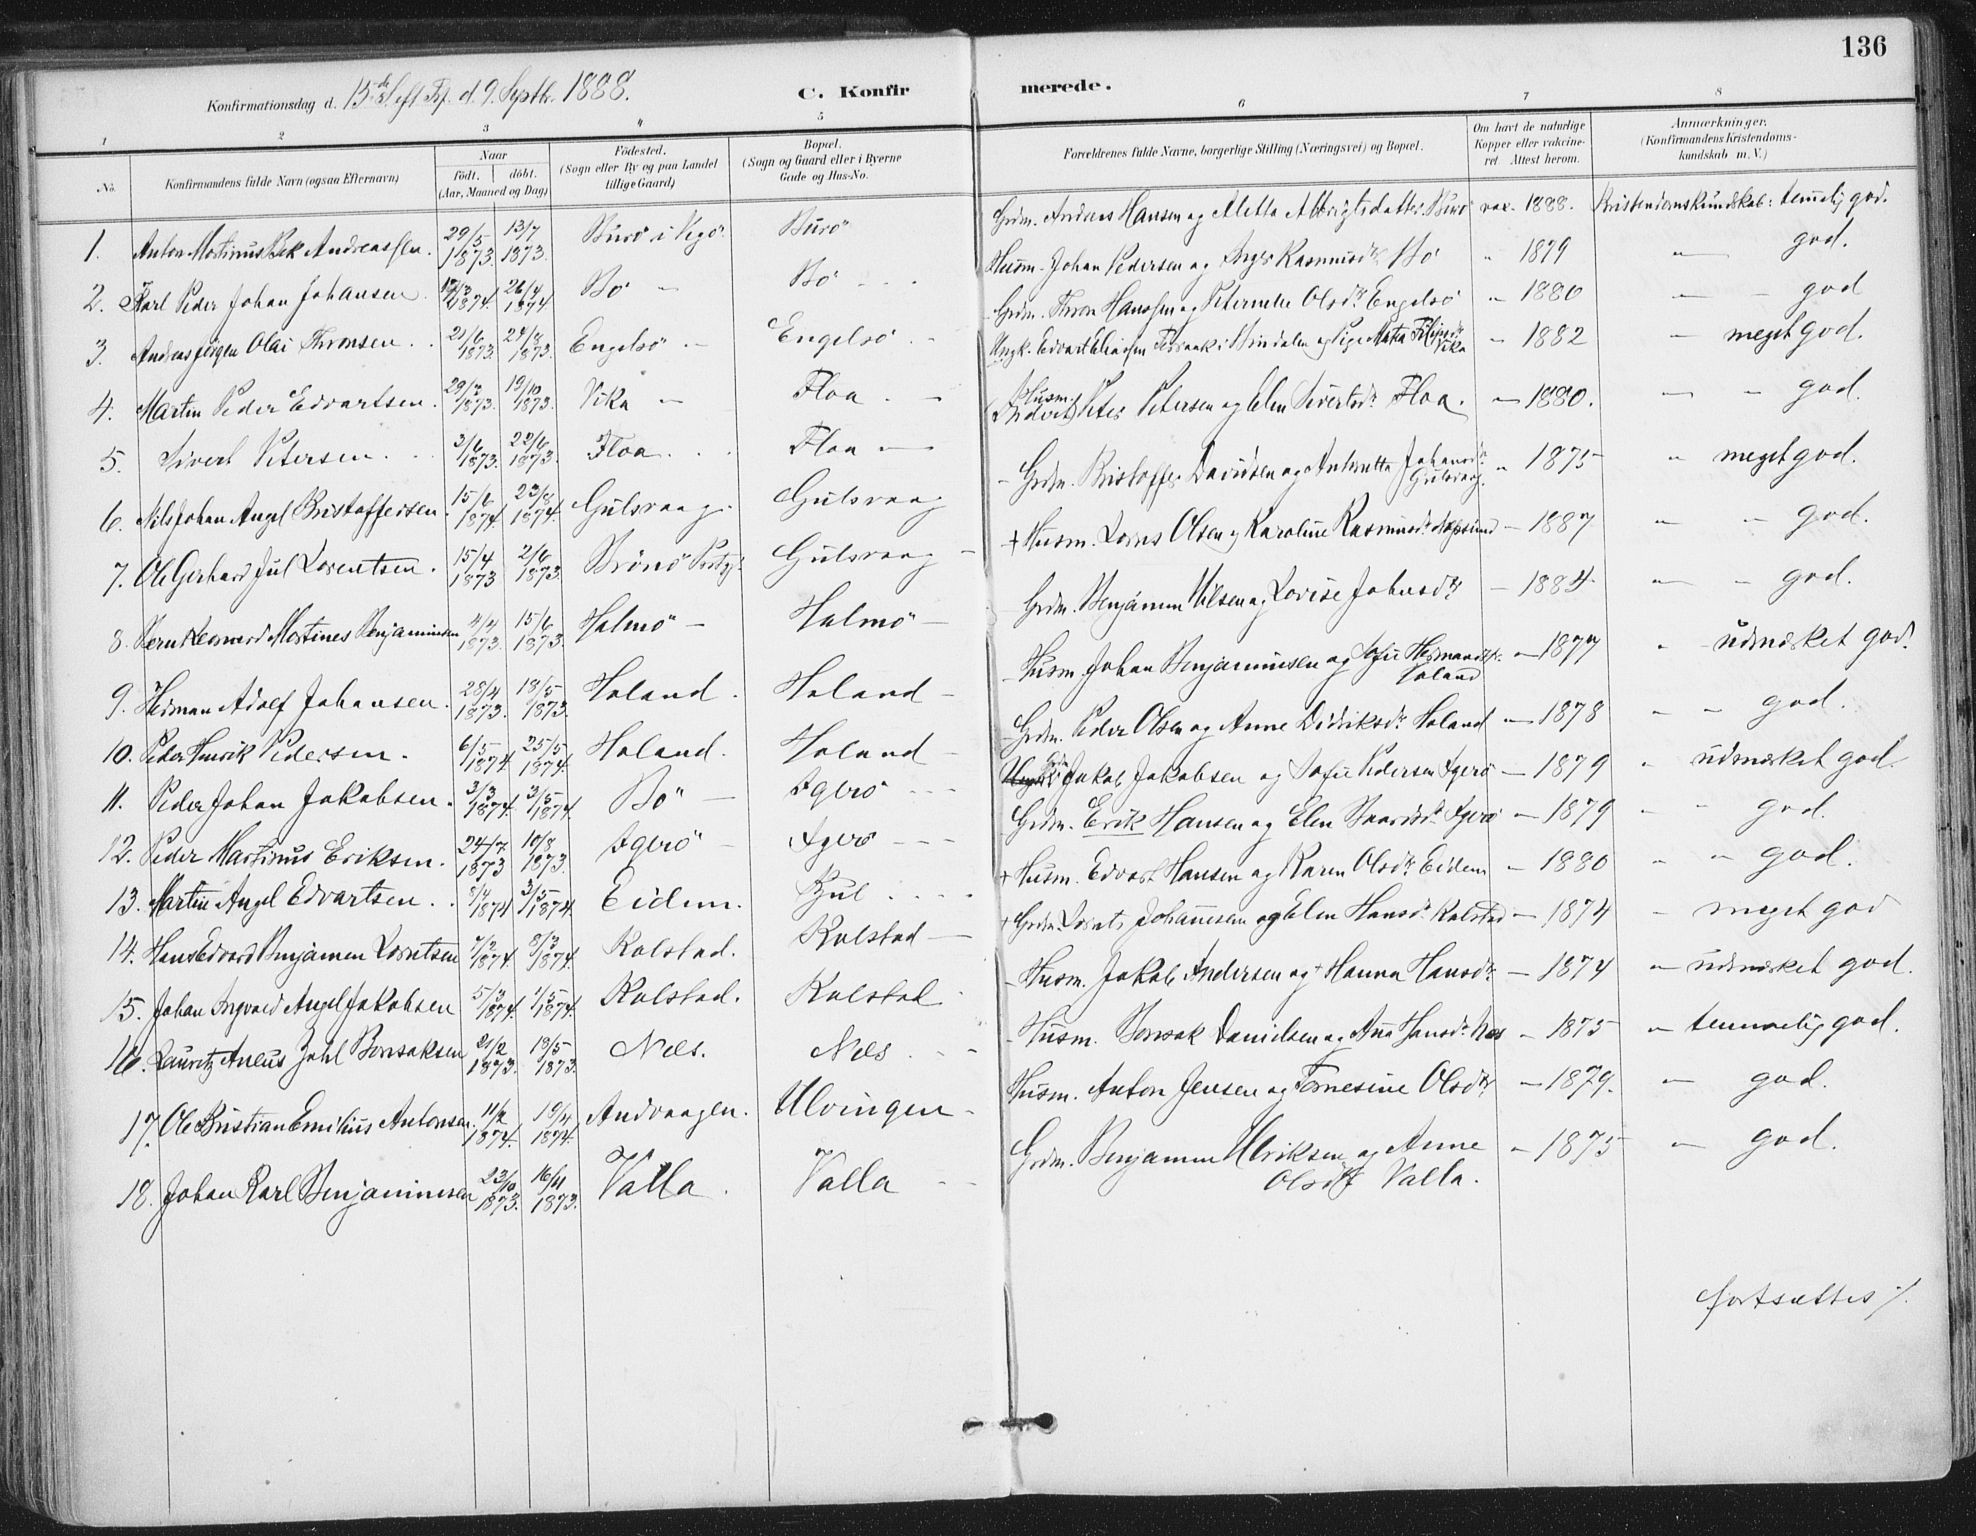 136
Konfirmationsdag d. 15de S. eft. Tr. d. 9. Septbr. 1888.
C. Konfir merede.
1 2 3 4 5 6 7 8
No. Konfirmandens fulde Navn (ogsaa Efternavn) Naar födt. döbt. (Aar, Maaned og Dag)
Födested. (Sogn eller By og paa Landet tillige Gaard)
Bopæl. (Sogn og Gaard eller i Byerne Gade og Hus-No.
Forældrenes fulde Navne, borgerlige Stilling (Næringsvei) og Bopæl.
Om havt de naturlige Kopper eller vakcineret. Attest herom.
Anmærkninger. (Konfirmandens Kristendomskundskab m. V.)
1. Anton Martinus Bek Andreassen. 29/5 1873. 13/7 1873. Burö i Vegö Burö Grdm. Andreas Hansen og Aletta Albrigtsdatter Burö vax. 1888. Kristendomskundskab: temmelig god.
2. Karl Peder Johan Johansen. 1874. 26/4 1874. Bö — Bö Husm. Johan Pedersen og Inger Rasmusdtr Bö " 1879 — god.
3. Andreas Jörgen Olai Thronsen. 21/6 1873. 24/8 1873. Engelsö — Engelsö Grdm. Thron Hanssen og Peternelle Olsdtr Engelsö " 1880 — — god
4. Martin Peder Edvartsen. 29/3 1873. 19/10 1873. Vika — Floa — Ungk. Edvart Eliassen i Bindalen og Pige Marta Vika — 1882 — meget god.
5. Sivert Petersen. 3/6 1873. 22/6 1873. Floa Floa — Husm. Peter Petersen og Elen Sivertsdr Floa. — 1880. — — god.
6. Nils Johan Angel Kristoffersen 15/6 1874. 23/8 1874. Gulsvaag Gulsvaag — Grdm. Kristoffer Davidsen og Antonetta Johansdr Gulsvaag. " 1875 " meget god.
7. Ole Gerhard Jul Lorentsen. 15/4 1873 2/6 1873. Brönö Gulsvaag — + Husm. Lorns Olsen og Karoline Rasmusdr — 1887 " — god.
8. Bernt Leonard Martines Benjaminsen 4/4 1873. 15/6 1873. Halmö — Halmö — Grdm. Benjamin Nilsen og Lovise Johnsdtr — 1884 — — god.
9. Herman Adolf Johansen. 28/4 1873. 18/5 1873. Holand. Holand — Husm. Johan Benjaminsen og Sofie Hermandsdr. Holand — 1877 " udmærket god.
10. Peder Henrik Pedersen. 6/5 1874. 25/5 1874. Holand. Holand — Grdm. Peder Olsen og Anne Didriksdr Holand — 1878 — — god.
11. Peder Johan Jakobsen. 3/3 1874. 3/5 1874. Bö — Igerö Jakob Jakobsen og Sofie Pedersen Igerö — 1879 " udmærket god.
12. Peder Martinus Eriksen. 24/7 1873 10/8 1873. Igerö — Igerö Grdm. Erik Hansen og Elen Igerö — 1879 " " god.
13. Martin Angel Edvartsen. 8/4 1874 3/5 1874. Eidem. + Husm. Edvart Hansen og Karen Olsdr Eidem — 1880 " " god.
14. Hans Edvard Benjamen Lorntsen 7/2 1874 8/3 1874. Kolstad. Kolstad — + Grdm. Lornts Johannesen og Elen Hansdr Kolstad — 1874 — meget god
15. Johan Ingvald Angel Jakobsen 5/3 1874. 1/5 1874. Kolstad. Kolstad — Husm. Jakob Andersen og + Hanna Hansdtr — 1874 — udmærket god.
16. Lauritz Aneus Johl Bonsaksen 21/2 1873. 18/5 1873. Næs. Næs Husm. Bonsak Danielsen og Ana Hansdr Næs — 1875 — temmelig god.
17. Ole Kristian Emilius Antonsen. 11/2 1874. 19/4 1874. Andvaagen. Ulvingen — Husm. Anton Jensen og Tomesine Olsdtr — 1879. — god.
18. Johan Karl Benjaminsen 23/10 1873. 16/11 1873. Valla. Valla — Grdm. Benjamin Ulriksen og Anne Olsdtr Valla. — 1875 — god.
fortsættes %.